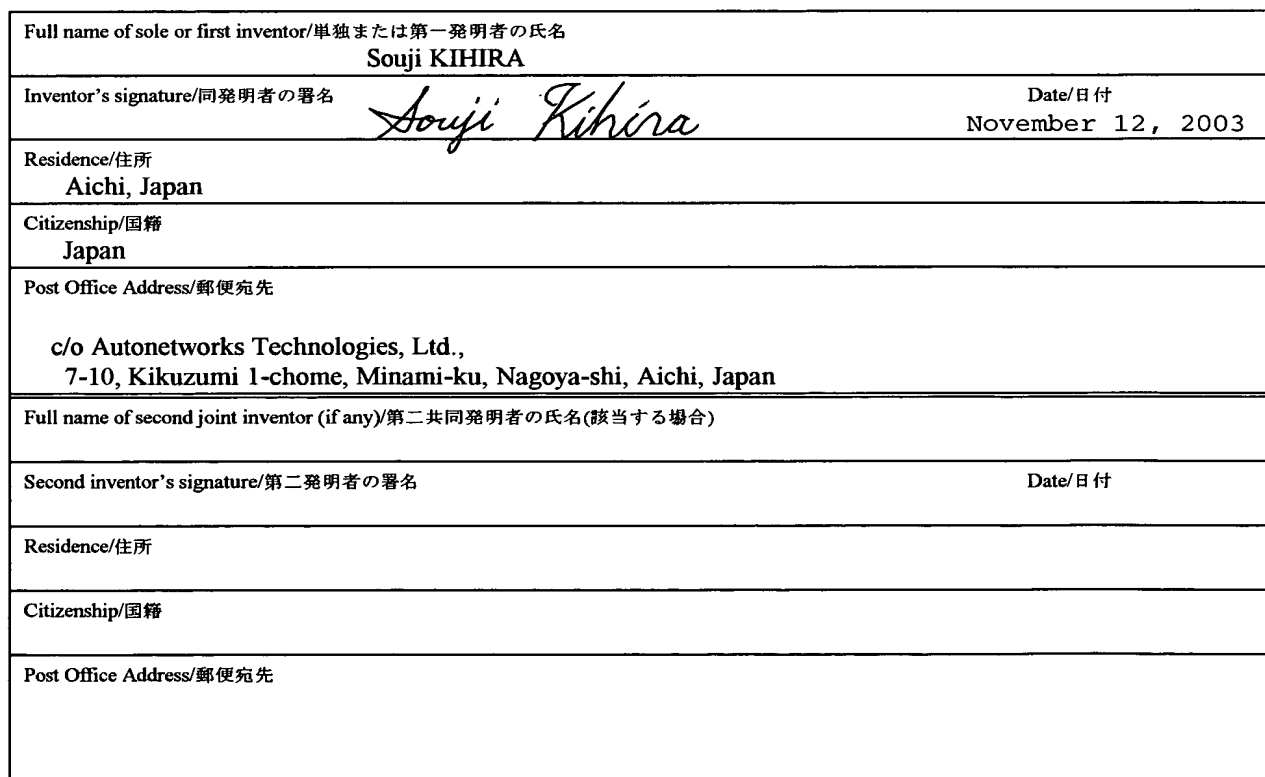 Full name of sole or first inventor/単独または第一発明者の氏名
Souji KIHIRA
Inventor's signature/同発明者の署名 Souji Kihira Date/日付
November 12, 2003
Residence/住所
Aichi, Japan
Citizenship/国籍
Japan
Post Office Address/郵便宛先
c/o Autonetworks Technologies, Ltd.,
7-10, Kikuzumi 1-chome, Minami-ku, Nagoya-shi, Aichi, Japan
Full name of second joint inventor (if any)/第二共同発明者の氏名(該当する場合)
Second inventor's signature/第二発明者の署名 Date/日付
Residence/住所
Citizenship/国籍
Post Office Address/郵便宛先